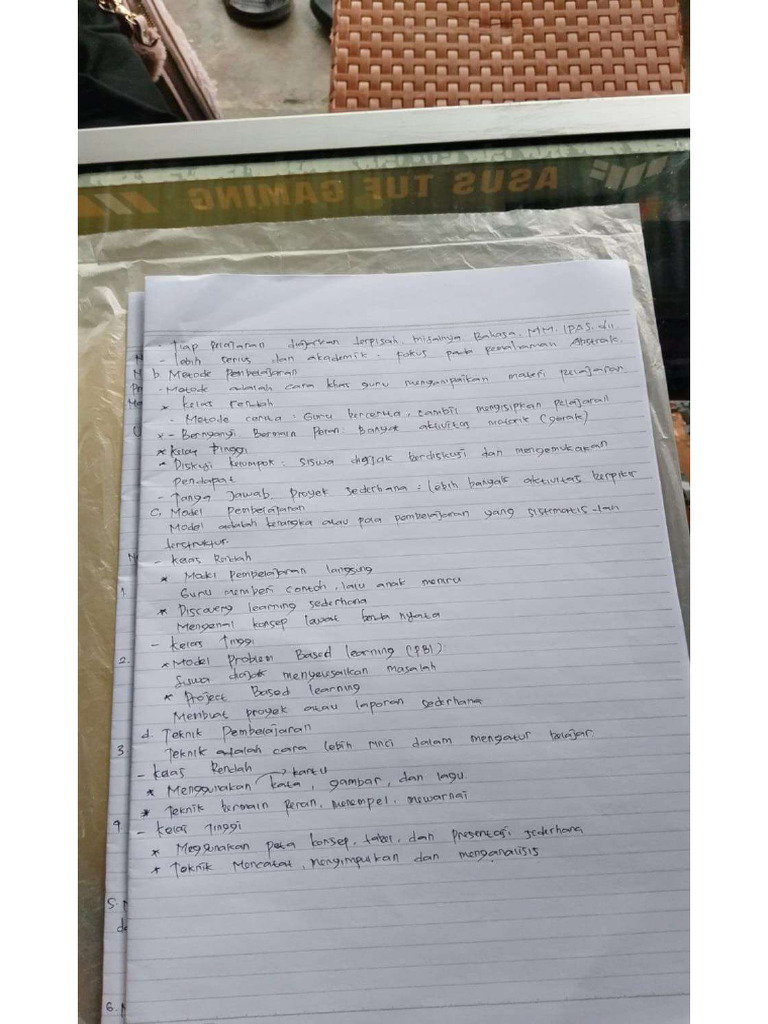 ASUS TUF GAMING
- Tiap Pelajaran diajarkan terpisah. misalnya Bahasa. MM. IPAS. dll.
- Lebih serius dan akademik. Fokus pada pemahaman Abstrak.
b. Metode Pembelajaran
- Metode adalah cara khas guru mengampaikan materi pelajaran
* Kelas Rendah
- Metode cerita : Guru bercerita, sambil mengisipkan pelajaran
* - Bernyanyi Bermain Peran : Banyak aktivitas motorik (gerak)
* Kelas Tinggi
- Diskusi kelompok : siswa diajak berdiskusi dan mengemukakan
pendapat
- Tanga Jawab Proyek sederhana : lebih banyak aktivitas berpikir
C. Model Pembelajaran
Model adalah kerangka atau pola pembelajaran yang sistematis dan
terstruktur.
- Kelas Rendah
* Model Pembelajaran langsung
Guru memberi contoh, lalu anak meniru
* Discovery learning sederhana
Mengenal konsep lewat benda nyata
- Kelas Tinggi
* Model Problem Based learning (PBl) :
Siswa diajak menyelesaikan masalah
* Project Based learning
Membuat proyek atau laporan sederhana
d. Teknik Pembelajaran
Teknik adalah cara lebih rinci dalam mengatur belajar.
- Kelas Rendah
* Menggunakan kata, gambar, dan lagu
kartu
* Teknik bermain peran, menempel, mewarnai
- Kelas Tinggi
* Meggunakan peta konsep, tabel, dan presentasi sederhana
* Teknik Mencatat, menyimpulkan dan menganalisis
1.
2.
3
4
5.
6.